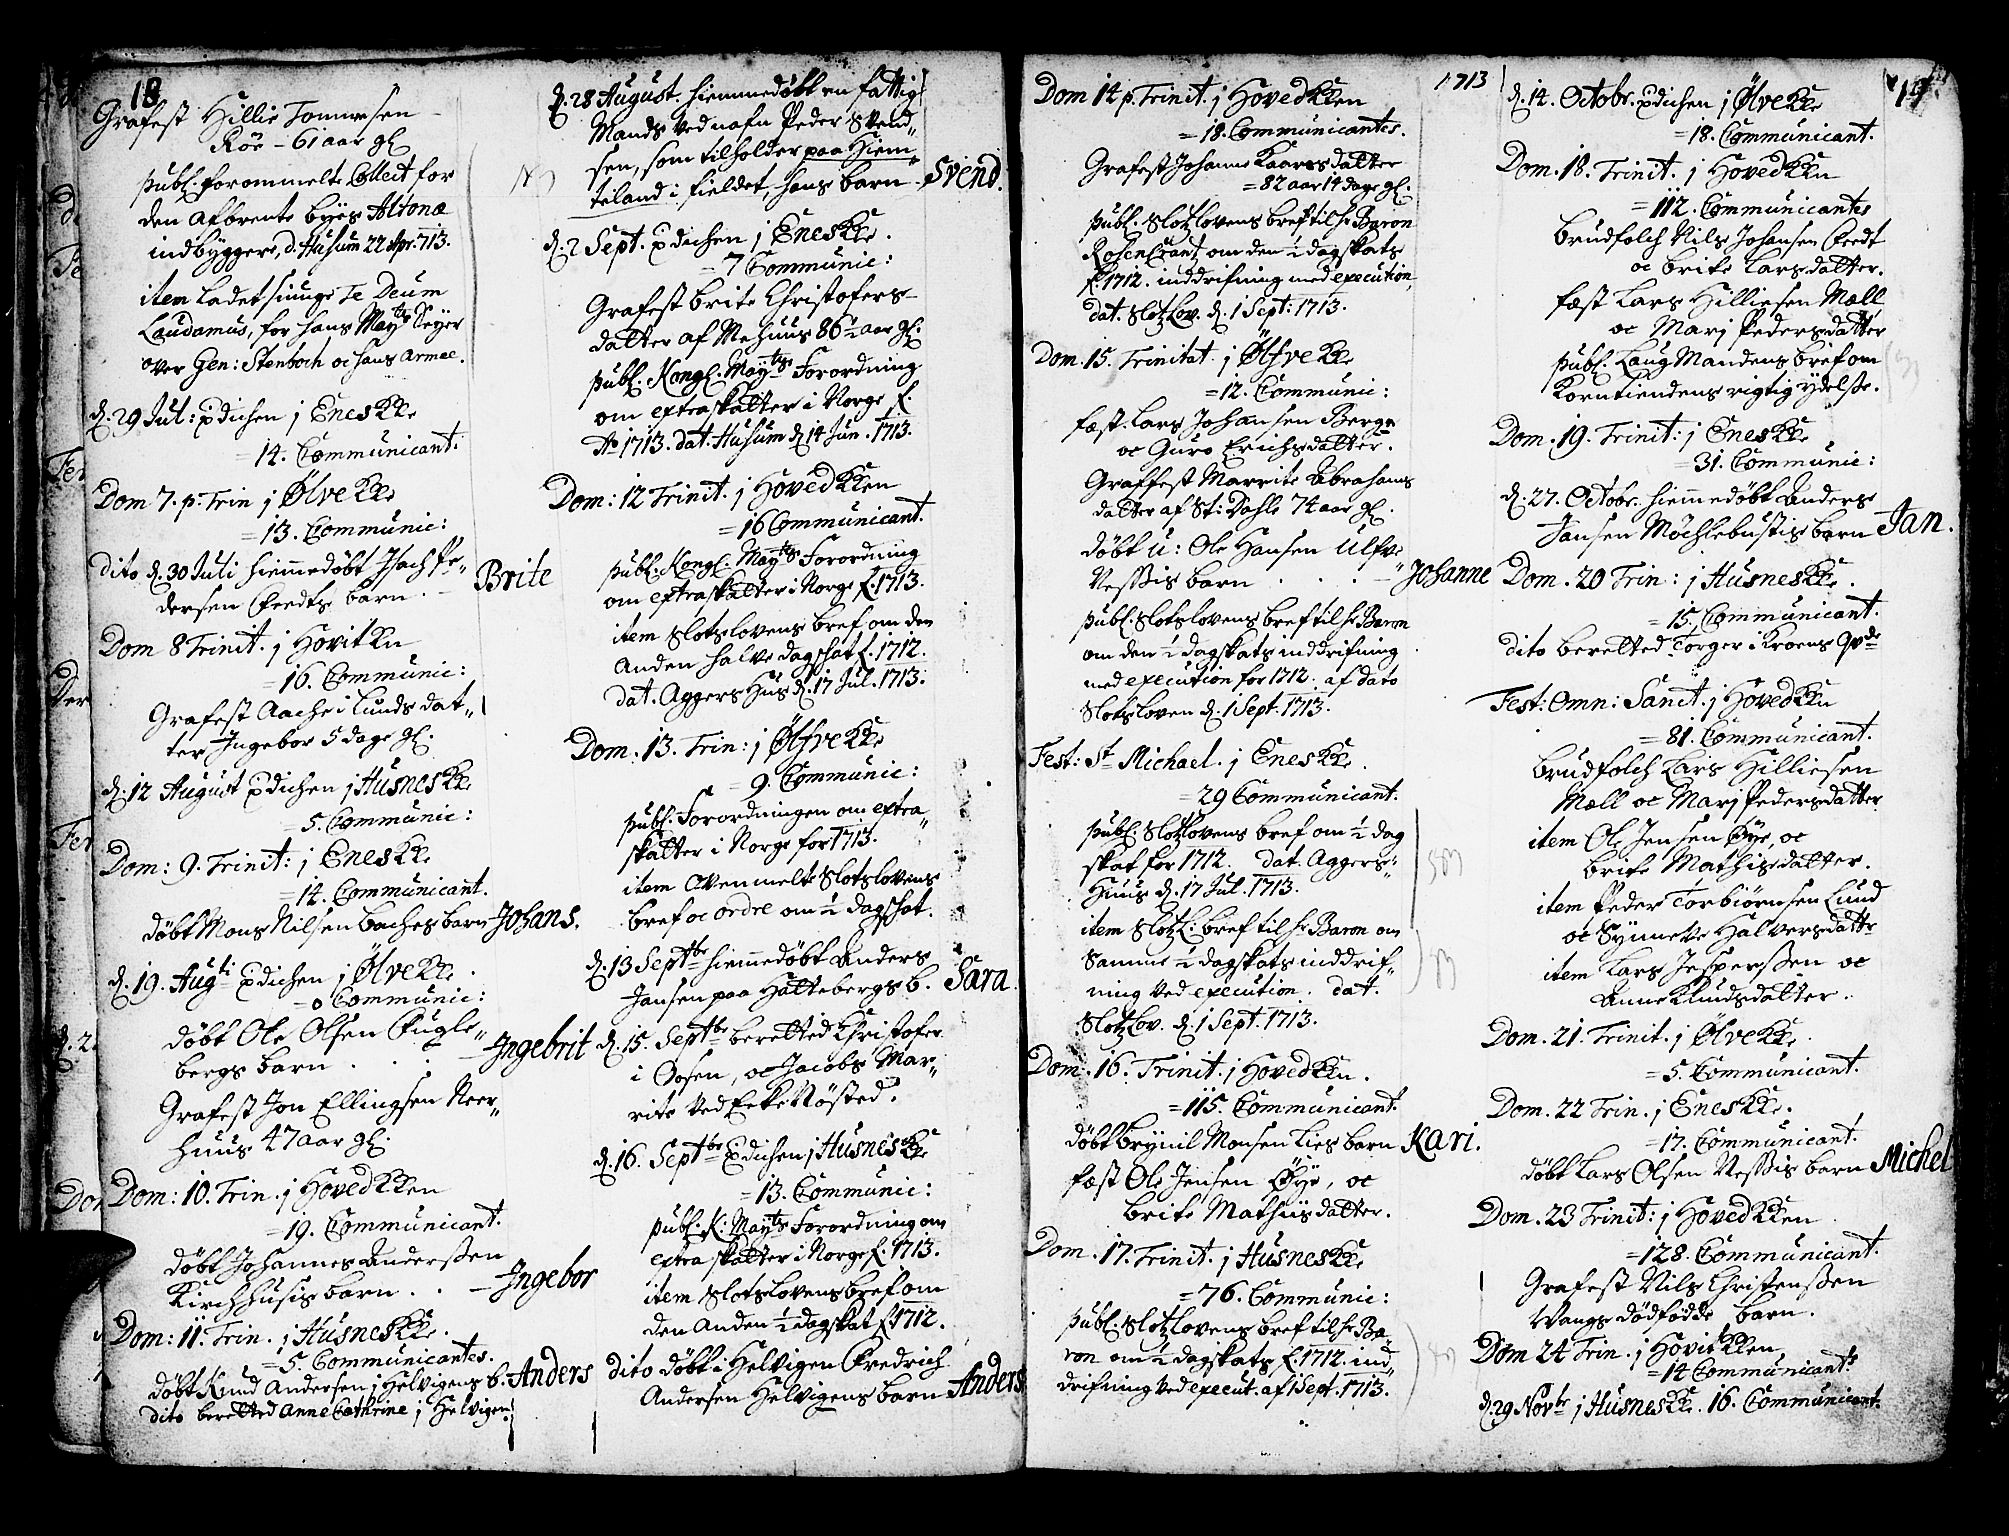 18
Grafest Hillie Tommesen
Röe – 61 aar gl.
publ. forommelte Collect for
den afbrente byes Altonæ
indbyggere, d. Husum 22 Apr. 713.
item ladet siunge Te Deum
Laudamus, for hans Mayts Seyer
over Gen: Stenboch oc hans Armee.
d. 29 Jul: prædichen j Enes KKe
= 14. Communicant:
Dom 7. p. Trin j Ölve KKe
= 13. Communic:
dito d. 30 Juli hiemmedöbt Isach Pe-
dersen Eeedts barn. – Brite
Dom 8 Trinit. j Hovit Kn
= 16. Communic:
Grafest Aache i Lunds dat-
ter Ingebor 5 dage gl.
d. 12 August prædichen j Husnes KKe
= 5. Communic:
Dom: 9. Trinit: j Enes KKe
= 14. Communicant.
döbt Mons Nilsen Baches barn Johans.
d. 19. Augti prædichen j Ölve KKe
= 0 Communic:
döbt Ole Olsen Fugle-
bergs barn . . – Ingebrit
Grafest Jon Ellingsen Neer-
huus 47 aar gl.
Dom: 10. Trin. j Hoved KKen
= 19. Communicant.
döbt Johannes Anderssen
Kirchhusis barn . . – Ingebor
Dom: 11. Trin. j Husnes KKe.
= 5. Communicantes.
döbt Knud Andersen j Helvigens b. Anders
dito beretted Anne Cathrine j Helvigen
d. 28 August. hiemmedöbt en fattig
Mands ved nafn Peder Svend-
sen, som tilholder paa Hiem-
teland i fieldet, hans barn. Svend.
d. 2 Sept. prædichen j Enes KKe.
= 7 Communic:
Grafest Brite Christofers-
datter af Mehuus 86 ½ aar gl.
publ. Kongl. Mayts Forordning
om extraskatter i Norge f.
Ao 1713. dat. Husum d 14 Jun. 1713.
Dom: 12 Trinit. j Hoved KKen
= 16 Communicant.
publ. Kongl. Mayts Forordning
om extraskatter i Norge f. 1713.
item Slotslovens bref om den
anden halve dagskat f. 1712.
dat. Aggers Hus d. 17 Jul. 1713.
Dom. 13. Trin: j Ölfve KKe
= 9. Communic:
publ. Forordningen om extra-
skatter i Norge for 1713.
item ovenmelte Slotslovens
bref oc ordre om ½ dagskat.
d. 13 Septbr hiemmedöbt Anders
Jansen paa Hattebergs b. Sara.
d. 15. Septbr beretted Christofer
i Oosen, oc Jacobs Mar-
rite ved Eeke Nösted.
d. 16. Septbr prædichen j Husnes KKe
= 13. Communic:
publ. K: Mayts Forordning om
extra skatter i Norge f. 1713.
item Slotslovens bref om
den anden ½ dagskat f. 1712.
dito döbt i Helvigen Fredrich
Andersen Helvigens barn Anders
Dom 14 p. Trinit. j Hoved KKen
= 18. Communicantes.
Grafest Johanne Kaarsdatter
= 82 aar 14 dage gl.
publ. Slotzlovens bref til Hr Baron
Rosencrantz om den ½ dagskats
f. 1712. inddrifning med execution,
dat. SlotzLov. d. 1 Sept: 1713.
Dom. 15. Trinitat. j Ölfve KKe
= 12. Communic:
fæst. Lars Johansen Berge
oc Guro Erichsdatter.
Graffest Marrite Abrahams
datter af St: Dahle 74 aar gl.
döbt u: Ole Hansen Ulfve
Nessis barn . . . – Johanne
publ. Slotslovens bref til Hr Baron
om den ½ dagskats inddrifning
med execution for 1712. af dato
Slotsloven d. 1 Sept. 1713.
Fest: St Michael. j Enes KKe.
= 29 Communicant.
publ. Slotzlovens bref om ½ dag
skat for 1712. dat Aggers-
Huus d. 17 Jul. 1713.
item SlotzL. bref til Hr Baron om
samme ½ dagskats inddrif-
ning ved execution. dat.
SlotzLov. d. 1 Sept. 1713.
Dom. 16. Trinit. j Hoved KKen.
= 115. Communicant.
döbt Brynil Monsen Lies barn Kari.
fæst Ole Jensen Öye, oc
Brite Mathiisdatter.
Dom. 17. Trinit. j Husnes KKe
= 76. Communic:
publ. Slotzlovens bref til Hr Ba-
ron om ½ dagskats f. 1712. ind-
drifning ved execut. af 1 Sept. 1713.
1713
19
d. 14. Octobr. prædichen j Ölve KKe
= 18. Communicant.
Dom. 18. Trinit. j Hoved KKen
= 112. Communicantes
Brudfolch Nils Johansen Eeedt
oc Brite Larsdatter.
fæst Lars Hilliesen Mæll
oc Marj Pedersdatter
publ. Laug Mandens bref om
Korntiendens rigtig ydelse.
Dom. 19. Trinit: j Enes KKe
= 31. Communic:
d. 27. Octobr. hiemmedöbt Anders
Jansen Möchlebustis barn Jan.
Dom. 20 Trin: j Husnes KKe.
= 15. Communicant.
dito beretted Torger i Kroens Qvde
Fest: Omn: Sanct. j Hoved KKen
= 81. Communicant.
Brudfolch Lars Hilliesen
Mæll oc Marj Pedersdatter
item Ole Jensen Öye, oc
Brite Mathisdatter.
item Peder Torbiörnsen Lund
oc Synneve Halversdattr
item Lars Jesperssen oc
Anne Knudsdatter.
Dom. 21. Trinit. j Ölve KKe.
= 5. Communicant.
Dom. 22 Trin. j Enes KKe.
= 17. Communicant.
döbt Lars Olsen Nessis barn Michel
Dom. 23 Trinit: j Hoved KKen
= 128. Communicant.
Grafest Nils Christenssen
Vangs dödfödde barn.
Dom 24 Trin. j Hovit KKen,
= 14 Communicants
d. 29 Novbr j Husnes KKe. 16. Communicant.